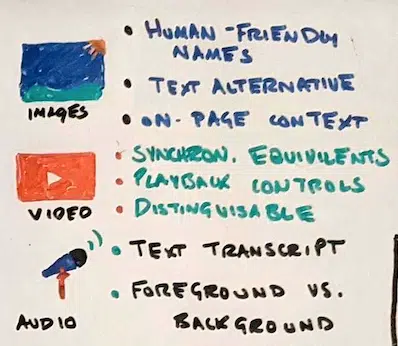 • HUMAN-FRIENDLY
NAMES
• TEXT ALTERNATIVE
• ON-PAGE CONTEXT
IMAGES
• SYNCHRON. EQUIVILENTS
• PLAYBACK CONTROLS
• DISTINGUISABLE
VIDEO
• TEXT TRANSCRIPT
• FOREGROUND VS.
BACKGROUND
AUDIO